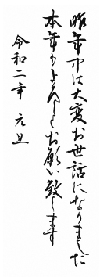 昨年中は大変お世話になりました
本年もよろしくお願い致します
令和二年 元旦